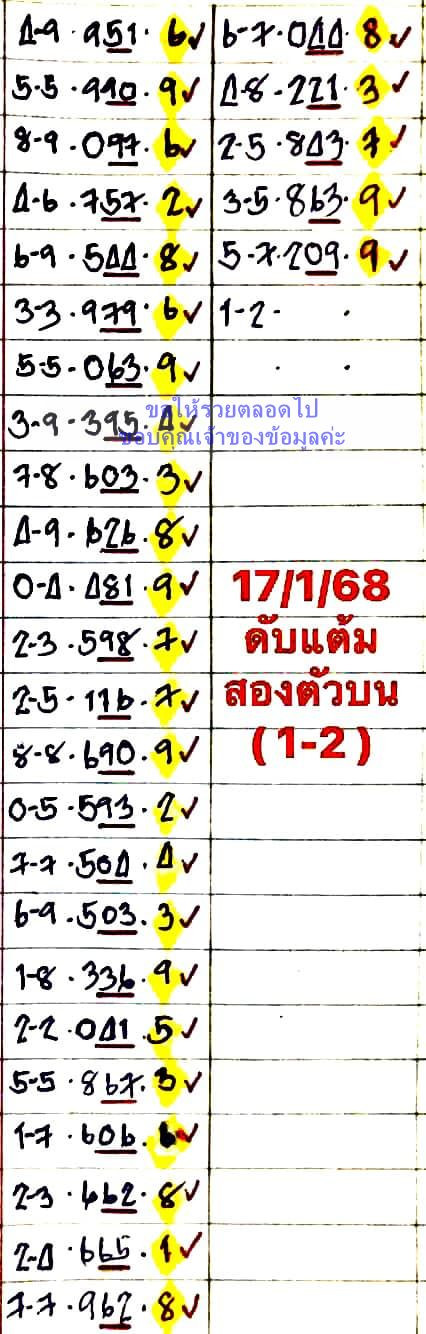 4-9 · 951 · 6✓
5-5 · 990 · 9✓
8-9 · 097 · 6✓
4-6 · 757 · 2✓
6-9 · 544 · 8✓
3-3 · 979 · 6✓
5-5 · 063 · 9✓
3-9 · 395 · 4✓
7-8 · 603 · 3✓
4-9 · 626 · 8✓
0-4 · 481 · 9✓
2-3 · 598 · 7✓
2-5 · 116 · 7✓
8-8 · 690 · 9✓
0-5 · 593 · 2✓
7-7 · 504 · 4✓
6-9 · 503 · 3✓
1-8 · 336 · 9✓
2-2 · 041 · 5✓
5-5 · 867 · 3✓
1-7 · 606 · 6✓
2-3 · 662 · 8✓
2-4 · 665 · 1✓
7-7 · 962 · 8✓
6-7 · 044 · 8✓
4-8 - 221 · 3✓
2-5 · 843 · 7✓
3-5 · 863 · 9✓
5-7 · 209 · 9✓
1-2 - ·
· · ·
ขอให้รวยตลอดไป
ขอบคุณเจ้าของข้อมูลค่ะ
17/1/68
ดับแต้ม
สองตัวบน
( 1-2 )